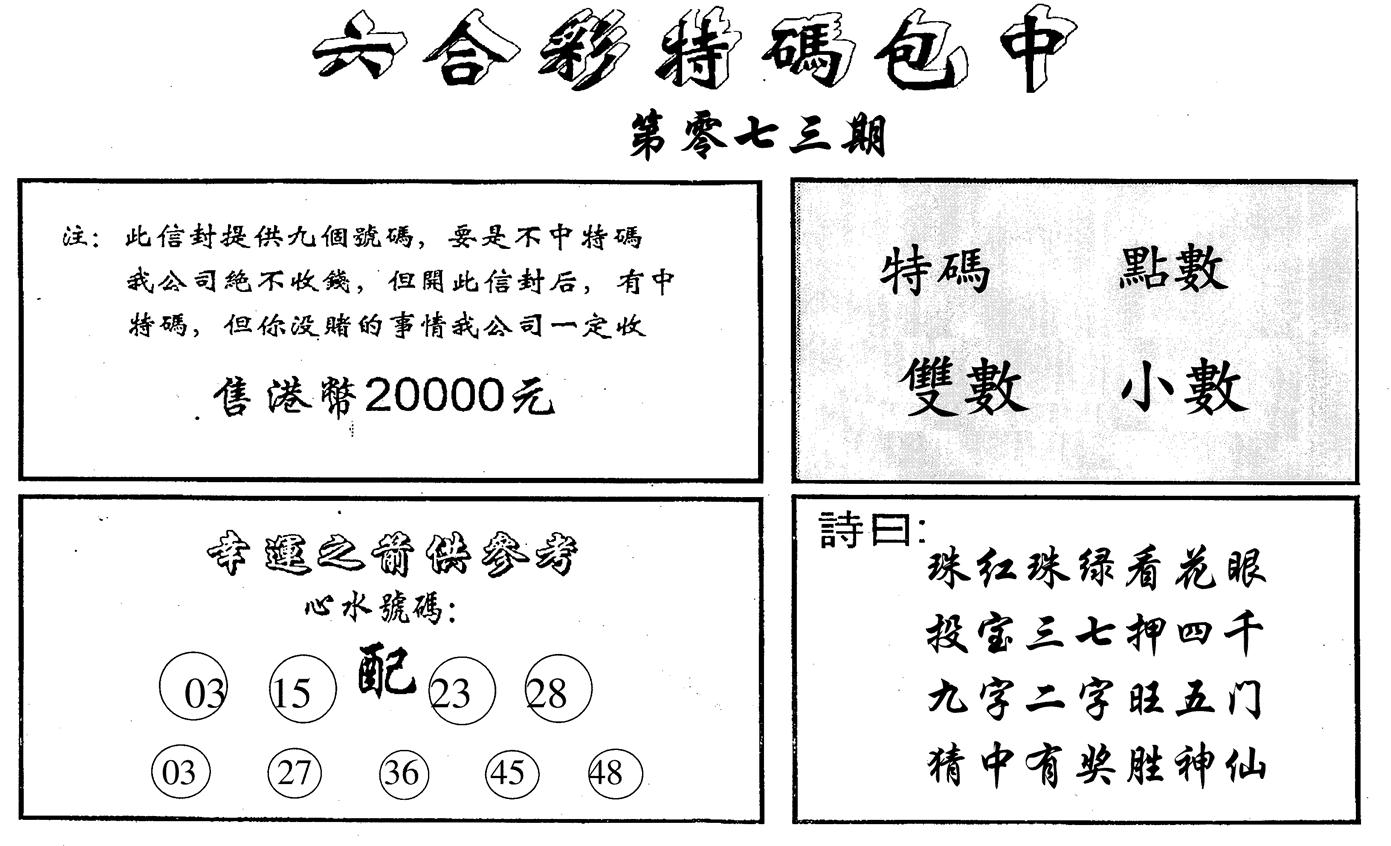 六合彩特碼包中
第零七三期
注：此信封提供九個號碼，要是不中特碼
我公司絕不收錢，但開此信封后，有中
特碼，但你没賭的事情我公司一定收
售港幣20000元
特碼 點數
雙數 小數
幸運之箭供參考
心水號碼：
03 15 配 23 28
03 27 36 45 48
詩曰：
珠红珠绿看花眼
投宝三七押四千
九字二字旺五门
猜中有奖胜神仙